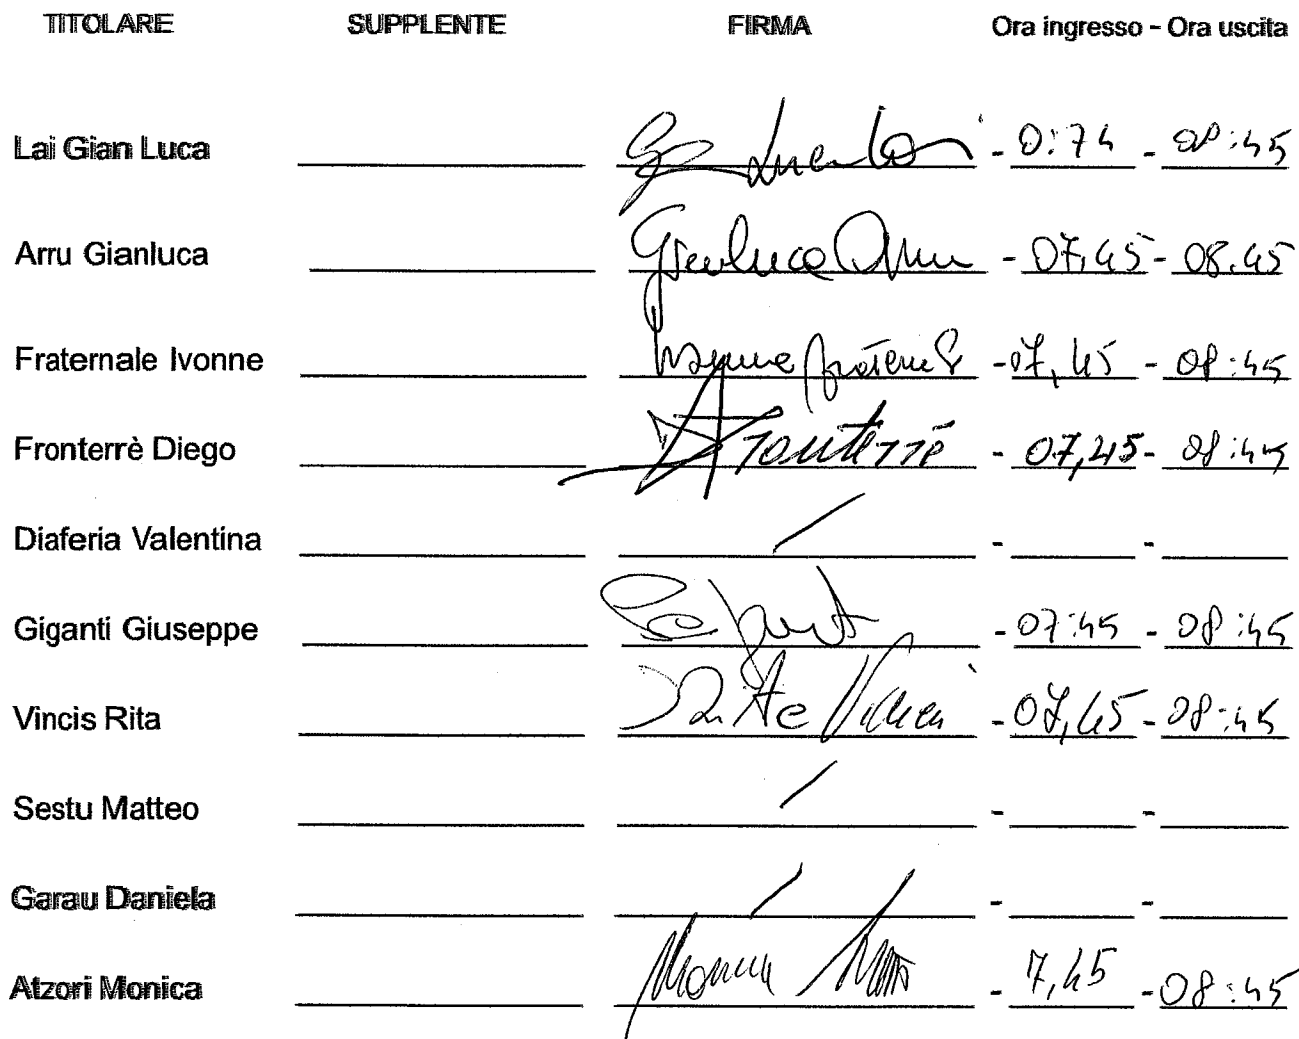 TITOLARE SUPPLENTE FIRMA Ora ingresso - Ora uscita
Lai Gian Luca - 0:74 - 08:45
Arru Gianluca Gianluca Arru - 07,45 - 08.45
Fraternale Ivonne - 07,45 - 08:45
Fronterrè Diego Fronterrè - 07,45 - 08:45
Diaferia Valentina / - -
Giganti Giuseppe - 07:45 - 08:45
Vincis Rita Rita Vincis - 07,45 - 08:45
Sestu Matteo / - -
Garau Daniela / - -
Atzori Monica Monica - 7,45 - 08:45